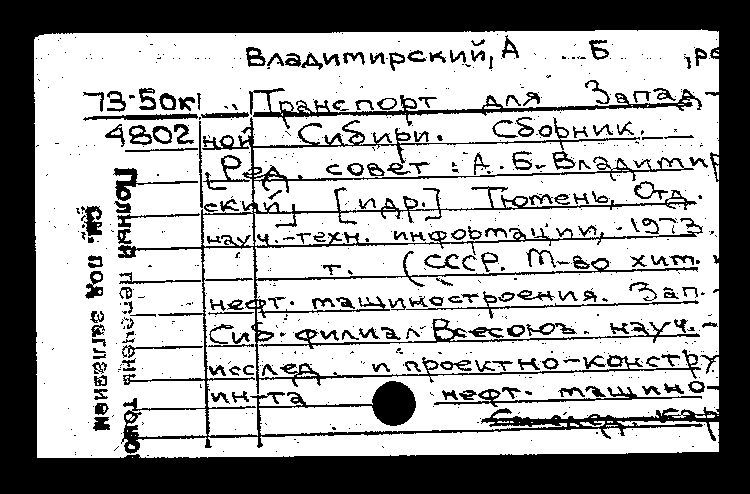 Владимирский, А Б , ре
73-50к Транспорт для Запад-
4802 ной Сибири. Сборник.
[Ред. совет: А. Б. Владимир
ский] [и др.] Тюмень, Отд.
науч.-техн. информации, 1973.
т. (СССР. М-во хим. и
нефт. машиностроения. Зап.-
Сиб. филиал Всесоюз. науч.-
исслед. и проектно-констру
ин-та нефт. машино-
См. след. кар
Полный перечень томов
см. под заглавием